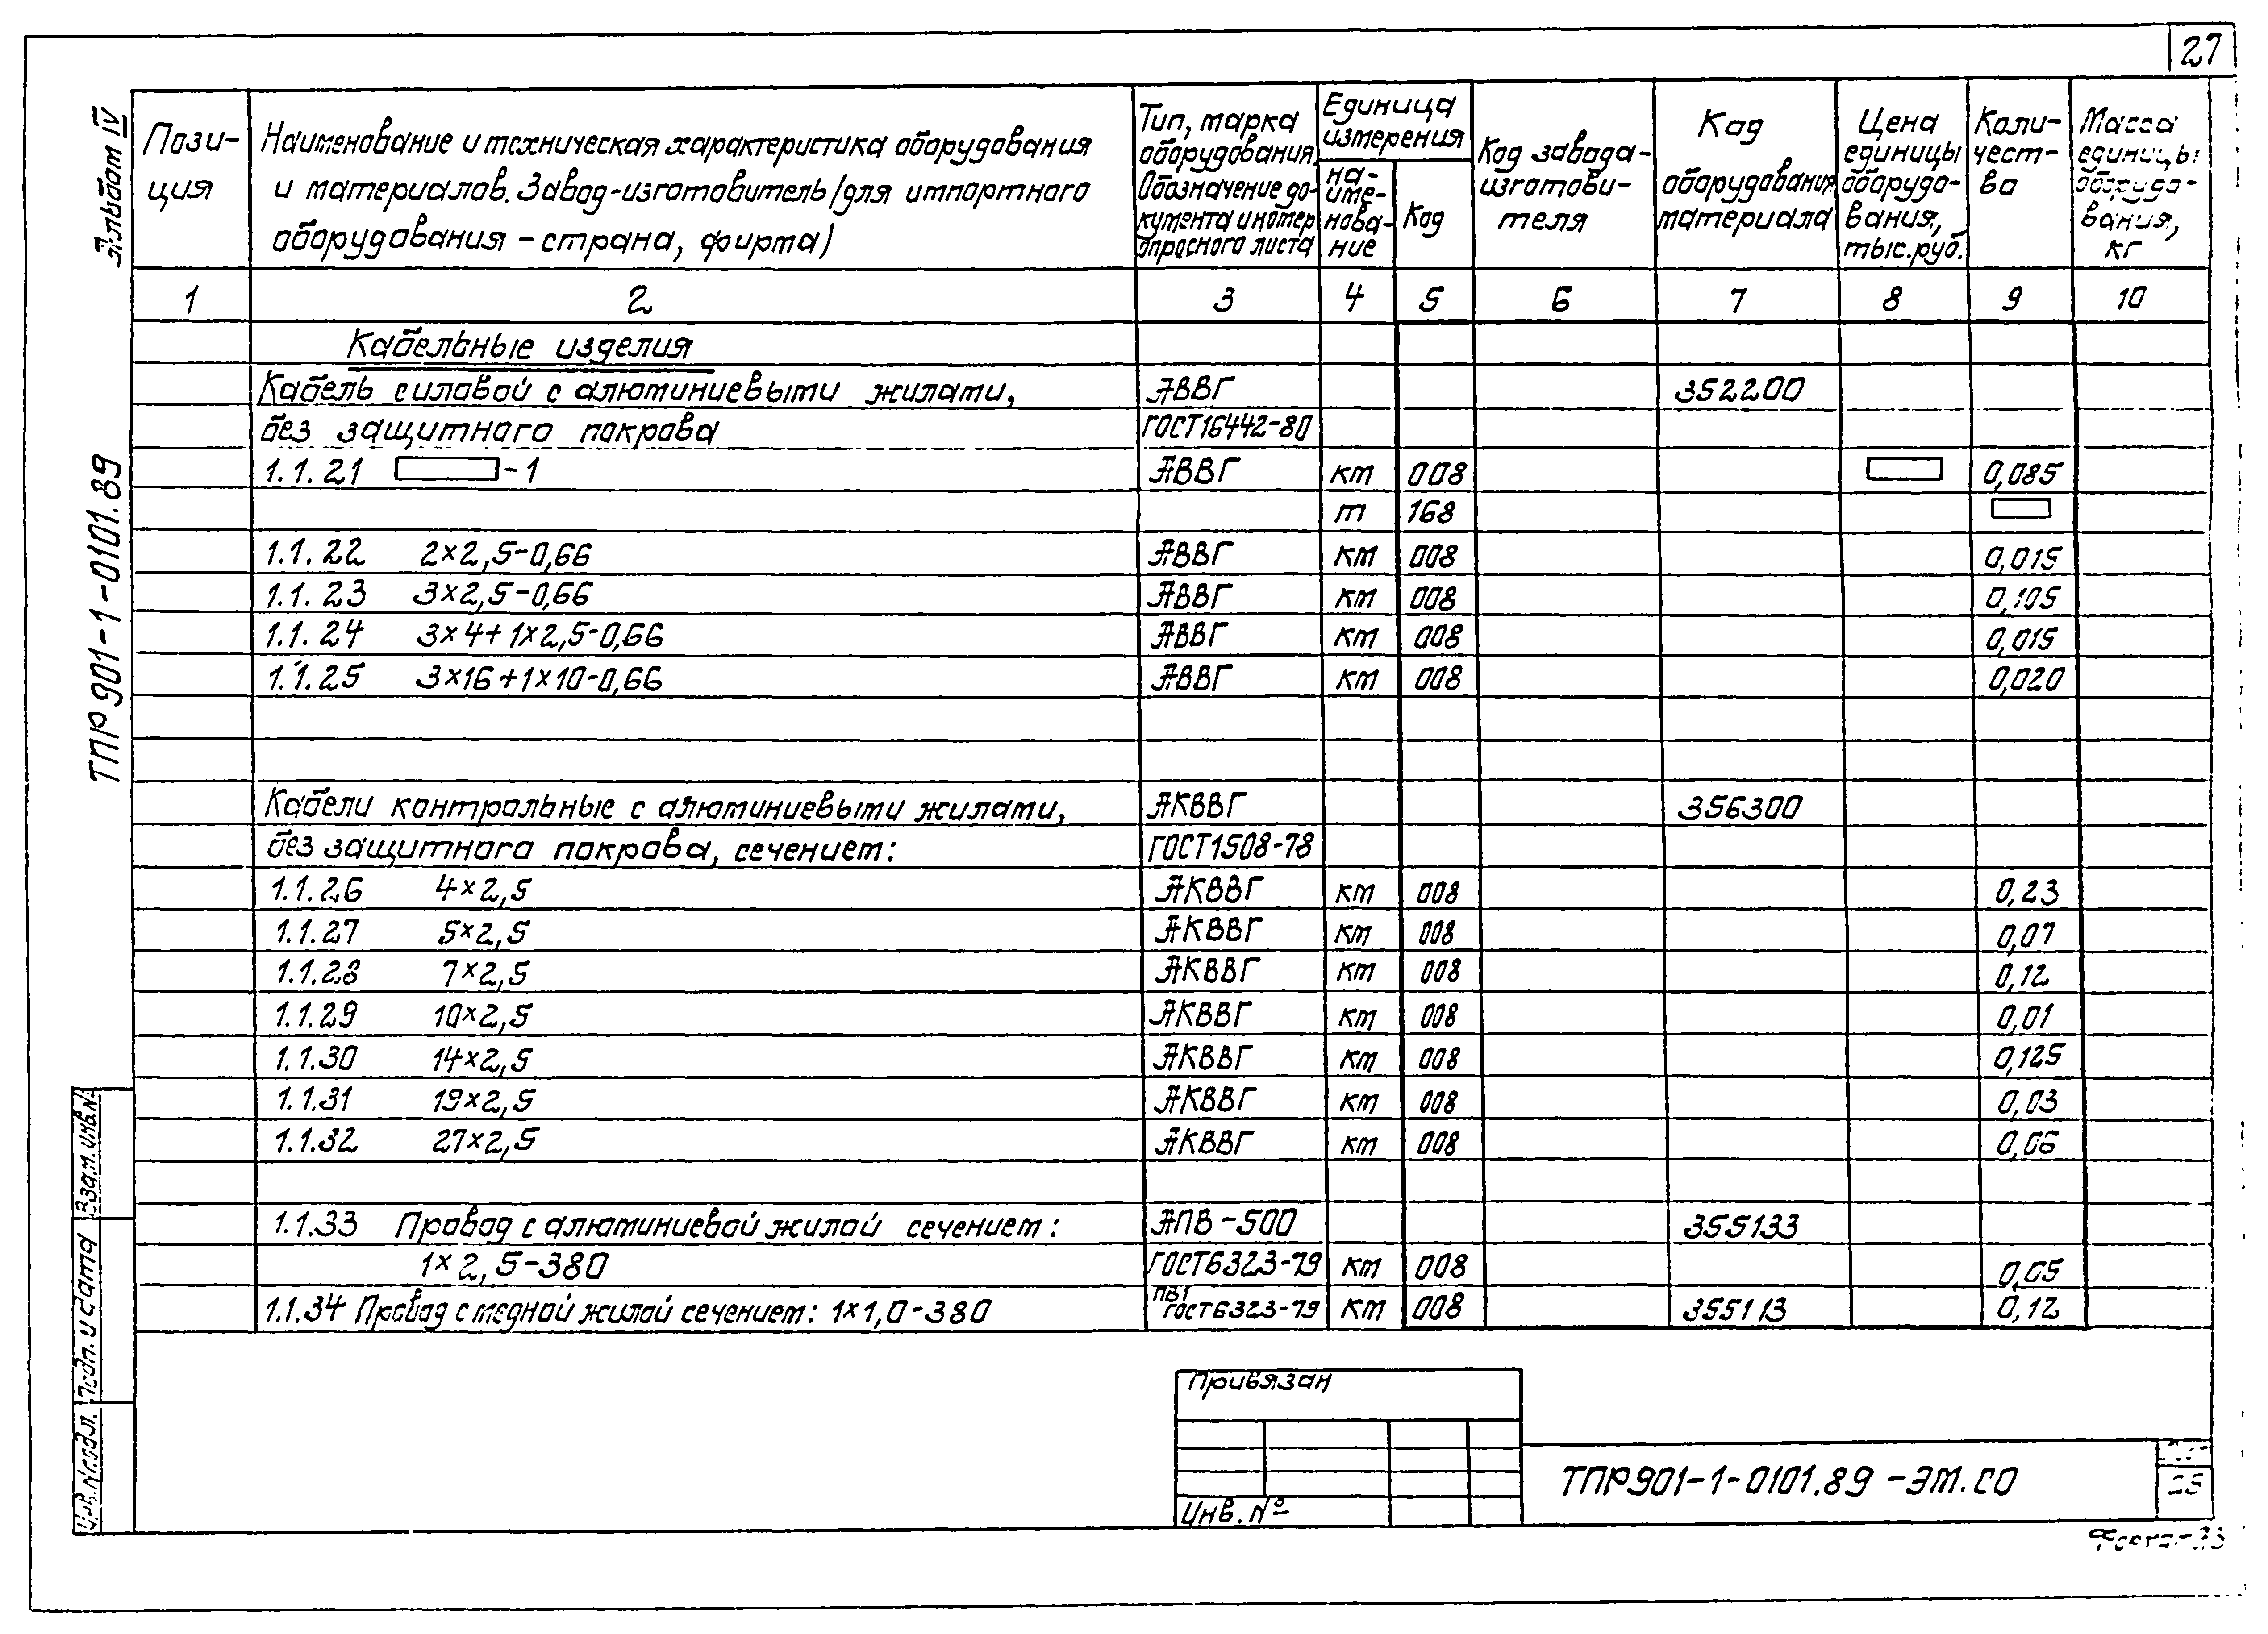 27
Альбом IV
ТПР 901-1-0101.89
Пози-
ция
Наименование и техническая характеристика оборудования
и материалов. Завод-изготовитель /для импортного
оборудования - страна, фирма)
Тип, марка
оборудования.
Обозначение до-
кумента и номер
опросного листа
Единица
измерения
на-
име-
нова-
ние
Код
Код завода-
изготови-
теля
Код
оборудования,
материала
Цена
единицы
оборудо-
вания,
тыс.руб.
Коли-
чест-
во
Масса
единицы
оборудо-
вания,
кг
1 2 3 4 5 6 7 8 9 10
Кабельные изделия
Кабель силовой с алюминиевыми жилами, АВВГ 352200
без защитного покрова ГОСТ16442-80
1.1.21 -1 АВВГ км 008 0,085
т 168
1.1.22 2×2,5-0,66 АВВГ км 008 0,015
1.1.23 3×2,5-0,66 АВВГ км 008 0,105
1.1.24 3×4+1×2,5-0,66 АВВГ км 008 0,015
1.1.25 3×16+1×10-0,66 АВВГ км 008 0,020
Кабели контрольные с алюминиевыми жилами, АКВВГ 356300
без защитного покрова, сечением: ГОСТ1508-78
1.1.26 4×2,5 АКВВГ км 008 0,23
1.1.27 5×2,5 АКВВГ км 008 0,07
1.1.28 7×2,5 АКВВГ км 008 0,12
1.1.29 10×2,5 АКВВГ км 008 0,01
1.1.30 14×2,5 АКВВГ км 008 0,125
1.1.31 19×2,5 АКВВГ км 008 0,03
1.1.32 27×2,5 АКВВГ км 008 0,06
1.1.33 Провод с алюминиевой жилой сечением: АПВ-500 355133
1×2,5-380 ГОСТ6323-79 км 008 0,05
1.1.34 Провод с медной жилой сечением: 1×1,0-380 ПВ1 ГОСТ6323-79 км 008 355113 0,12
Взам. инв.№
Подп. и дата
Инв.№ подл.
Привязан
Инв. №
ТПР901-1-0101.89 -ЭМ.СО